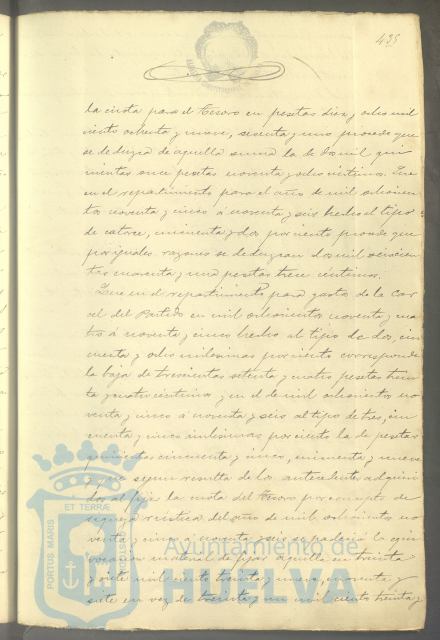 435
la cuota para el Tesoro en pesetas diez y ocho mil
ciento ochenta y nueve, sesenta y uno procede que
se deduzca de aquella suma la de dos mil qui
nientas once pesetas noventa y ocho céntimos. Que
en el repartimiento para el año de mil ochocien
tos noventa y cinco á noventa y seis hecho al tipo
de catorce, cincuenta y dos por ciento procede que
por iguales razones se deduzcan dos mil seiscien
tas cuarenta y una pesetas trece céntimos.
Que en el repartimiento para gastos de la Car
cel del Partido en mil ochocientos noventa y cua
tro á noventa y cinco hecho al tipo de dos, cin
cuenta y ocho milesimas por ciento corresponde
la baja de trescientas setenta y cuatro pesetas trein
ta y cuatro centimos y en el de mil ochocientos no
venta y cinco á noventa y seis al tipo de tres, cin
cuenta y cinco milesimas por ciento la de pesetas
quinientas cincuenta y cinco, cincuenta y nueve
y que segun resulta de los antecedentes adquiri
dos al fijar la cuota del Tesoro por concepto de
riqueza rústica del año de mil ochocientos no
venta y cinco á noventa y seis se padeció la equi
vocacion material de fijar aquella en treinta
y siete mil ciento treinta y nueve, cuarenta y
siete en vez de treinta y un mil ciento treinta y
PORTUS MARIS ET TERRÆ CUSTODIA
Ayuntamiento de
HUELVA